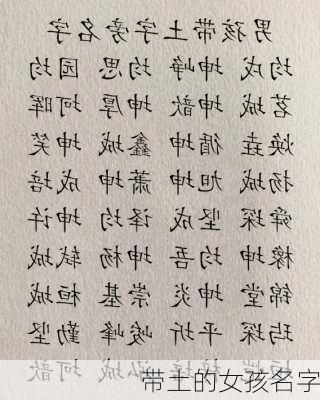 男孩带土字旁名字
均成 坤峰 均思 园均
茗城 坤歆 坤厚 坷晖
焕垚 循坤 鑫城 坤笑
扬城 旭坤 萧坤 成培
舜琛 坚成 译均 坤许
椽坤 均吾 坤杨 轼城
锦堂 坤炎 崇基 桓城
玙琛 平圻 峻峰 勤坚
坷歆
带土的女孩名字